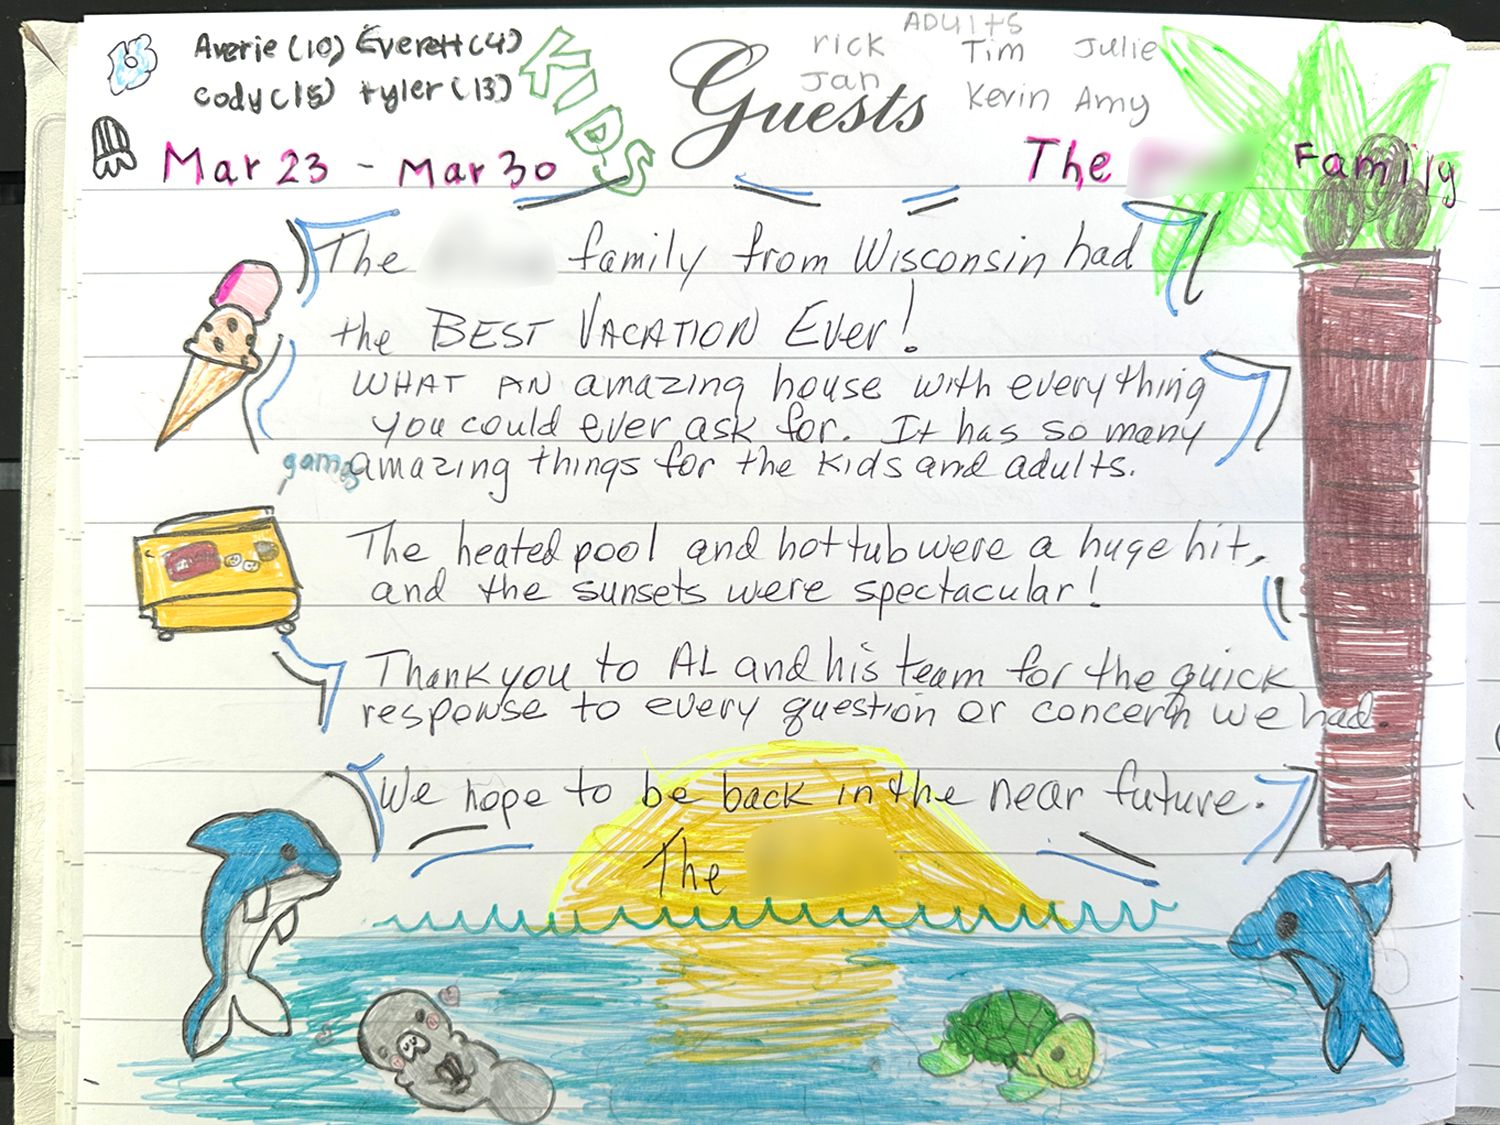 ADULTS
Averie (10) Everett (4)
Cody (15) tyler (13)
KIDS
rick Tim Julie
Jan Kevin Amy
Guests
Mar 23 - Mar 30
The Family
The family from Wisconsin had
the BEST VACATION Ever!
WHAT AN amazing house with everything
you could ever ask for. It has so many
amazing things for the kids and adults.
games
The heated pool and hot tub were a huge hit,
and the sunsets were spectacular!
Thank you to AL and his team for the quick
response to every question or concern we had.
We hope to be back in the near future.
The